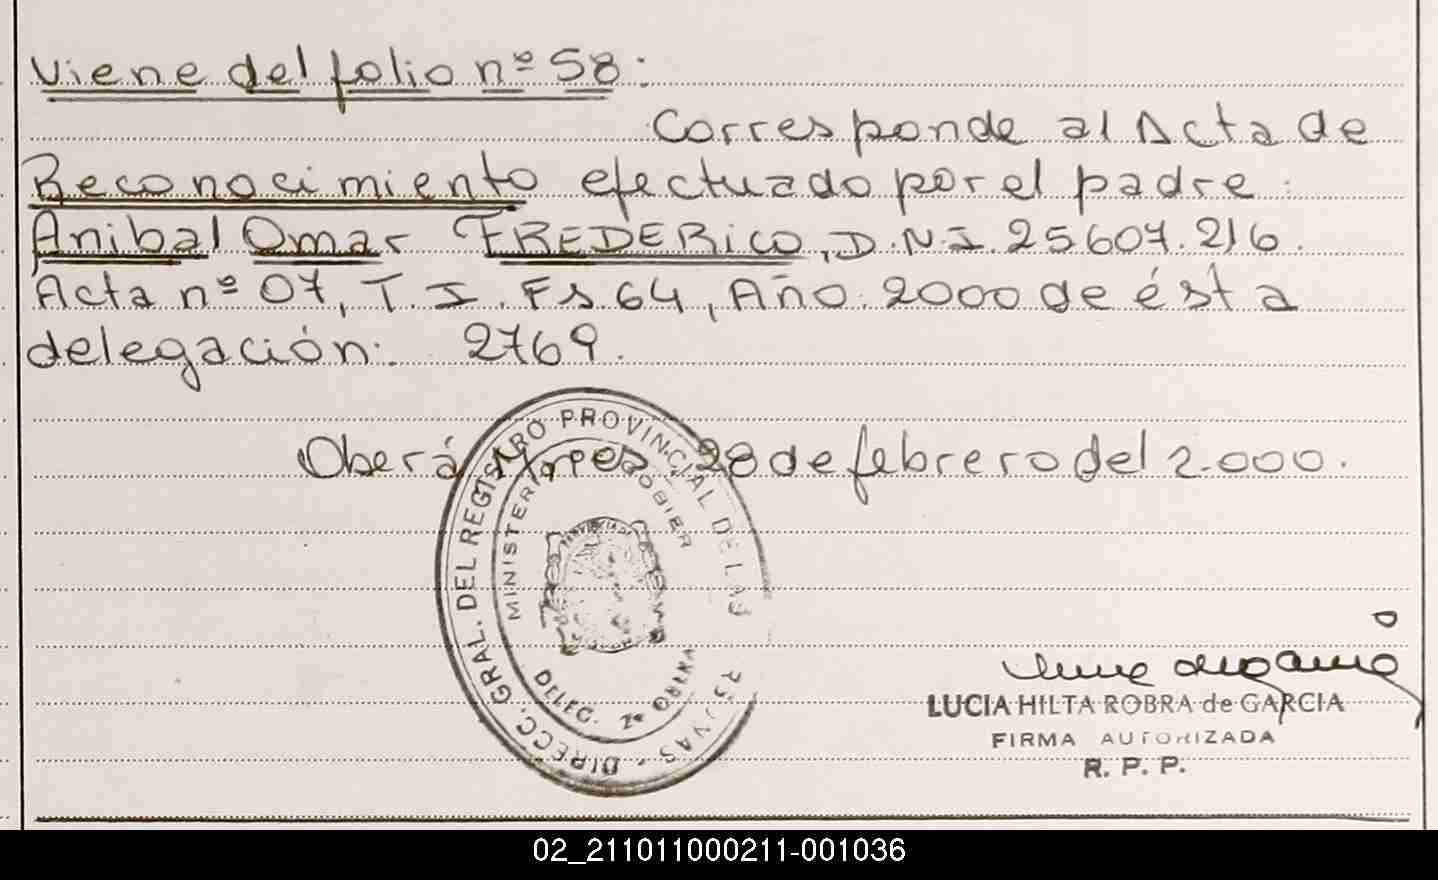 Viene del folio nº 58:
Corresponde al Acta de
Reconocimiento efectuado por el padre:
Anibal Omar FREDERICO, D.N.I. 25607.216.
Acta nº 07, T. I. Fs 64, Año: 2000 de ésta
delegación: 2769.
Oberá, Mnes, 28 de febrero del 2.000.
DIRECC. GRAL. DEL REGISTRO PROVINCIAL DE LAS
MINISTERI
DELEG.
LUCIA HILTA ROBRA de GARCIA
FIRMA AUTORIZADA
R. P. P.
02_211011000211-001036